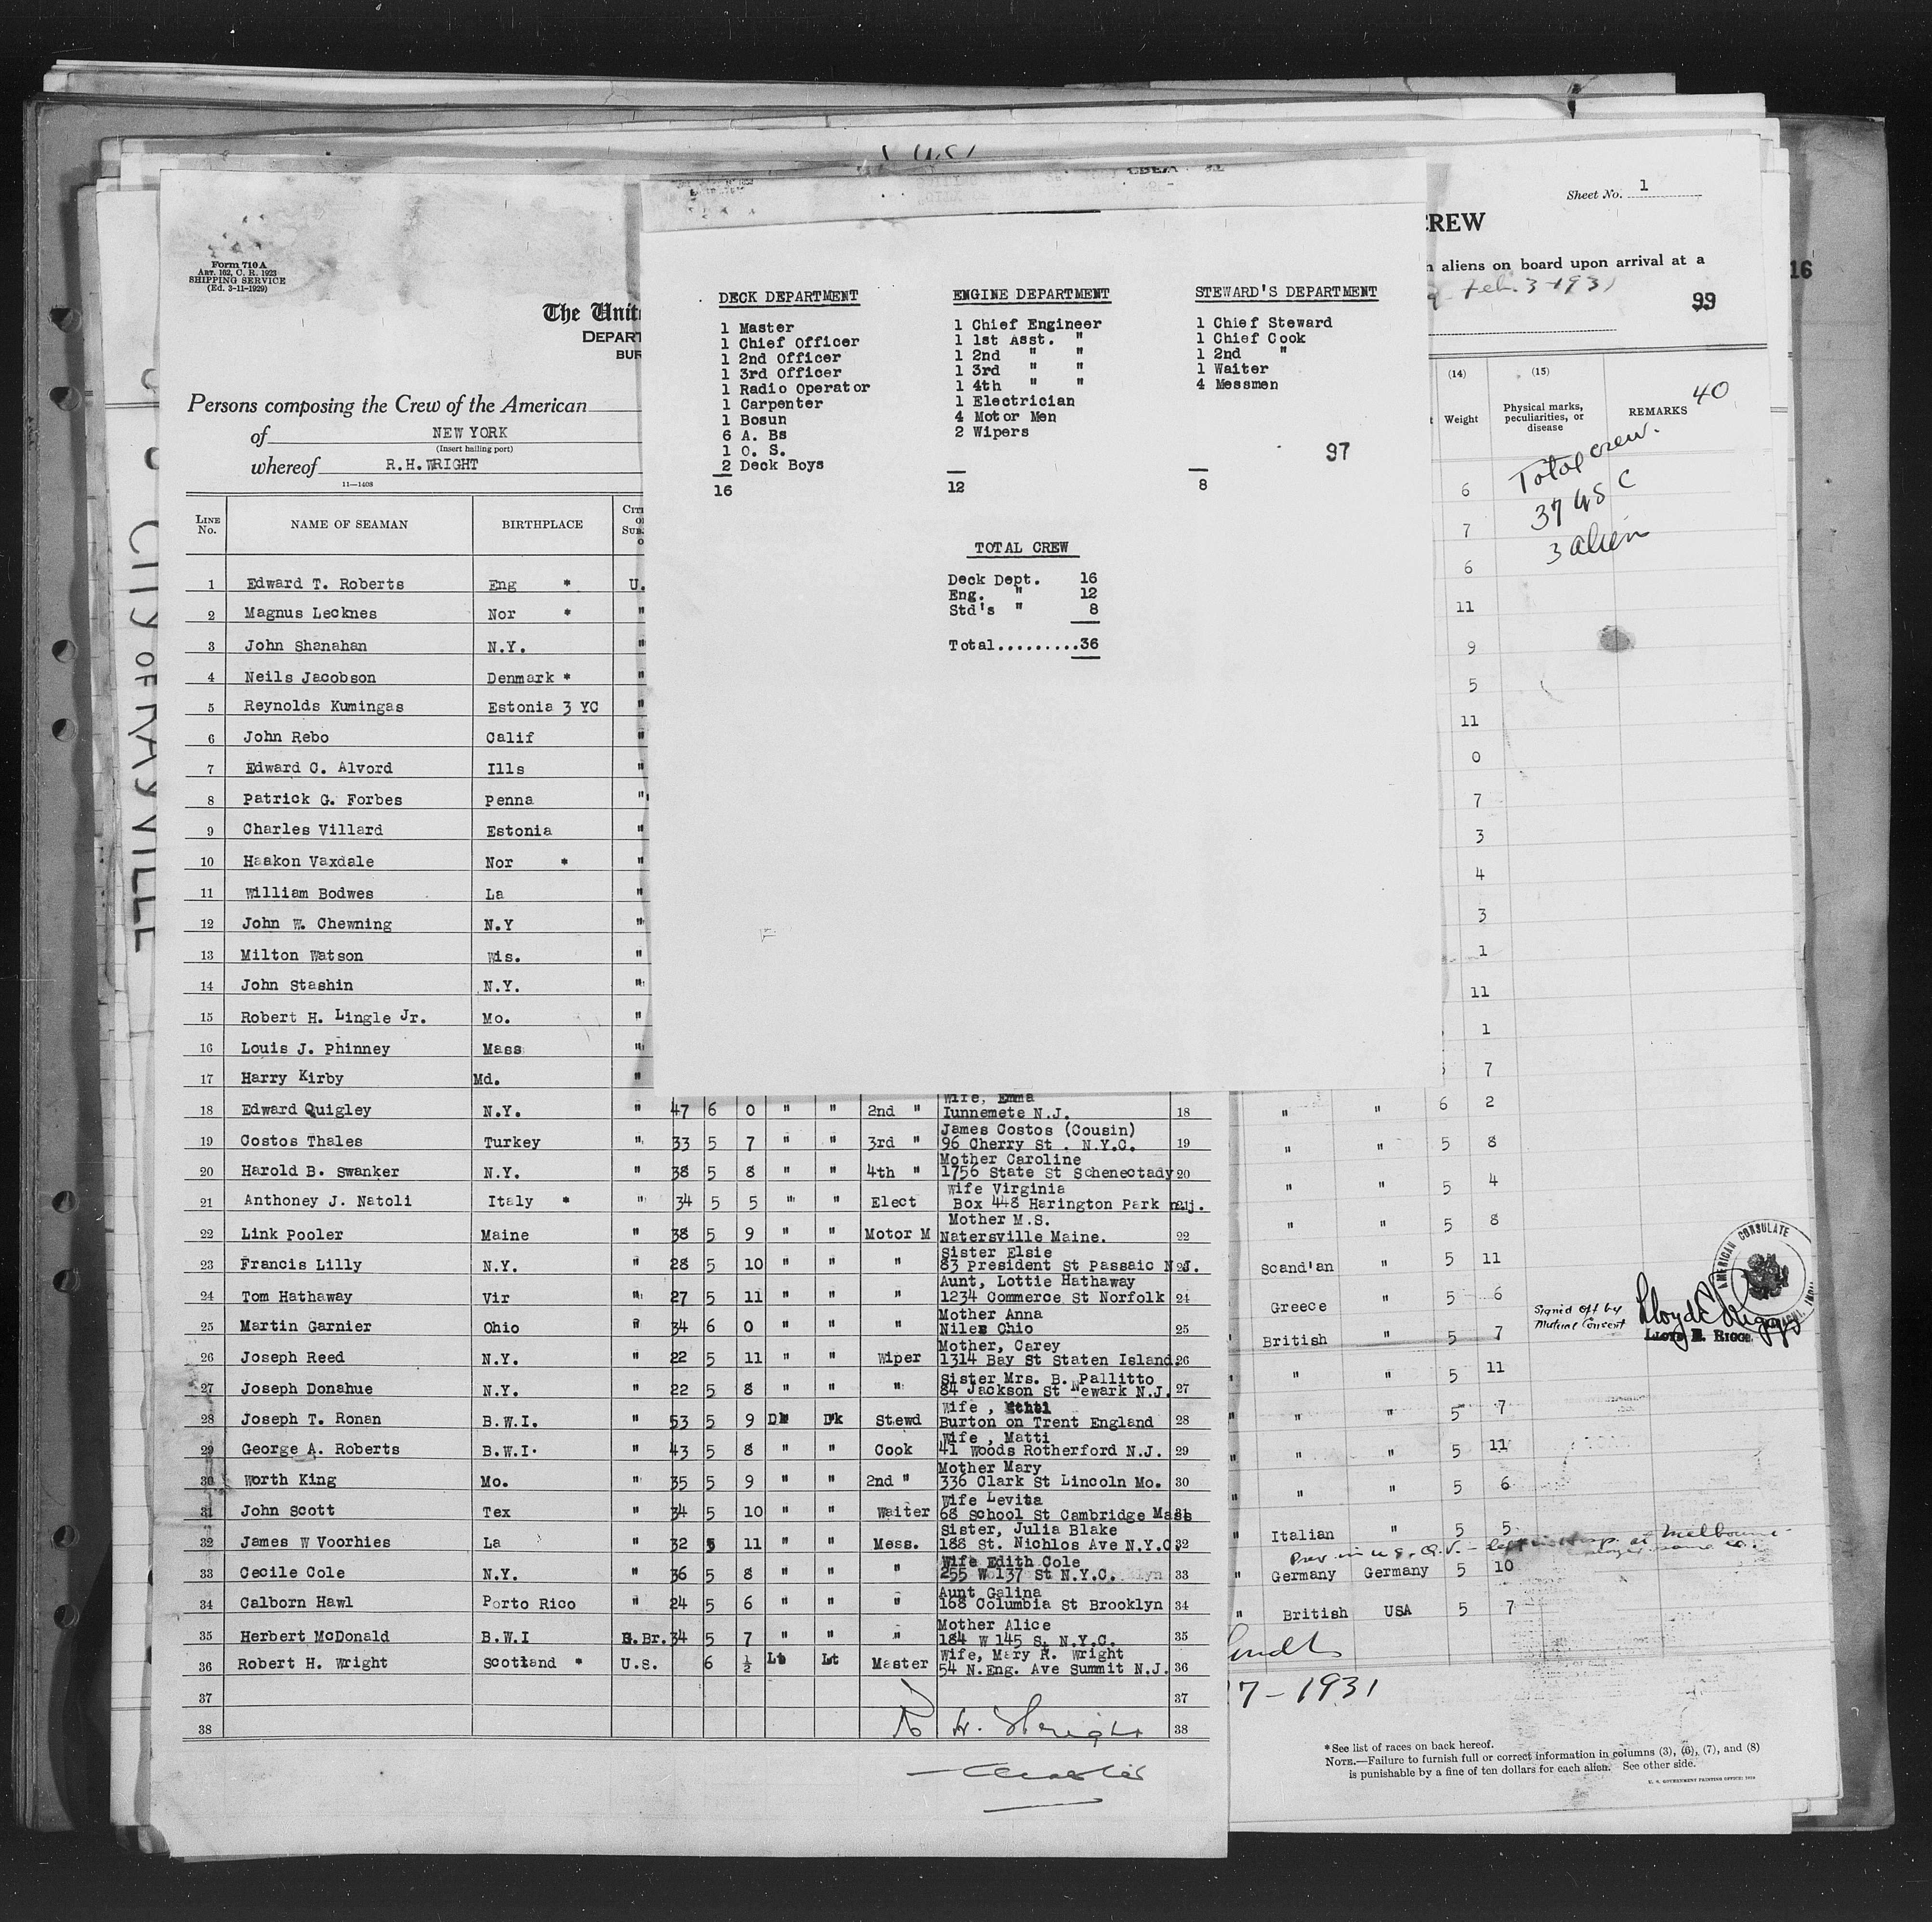 Form 710 A
ART. 162, C. R. 1923
SHIPPING SERVICE
(Ed. 3-11-1929)
The Unit
DEPART
BUR
Persons composing the Crew of the American
of NEW YORK
(Insert hailing port)
whereof R.H.WRIGHT
11—1408
LINE No. NAME OF SEAMAN BIRTHPLACE
1 Edward T. Roberts Eng * U.
2 Magnus Lecknes Nor * "
3 John Shanahan N.Y. "
4 Neils Jacobson Denmark * "
5 Reynolds Kumingas Estonia 3 YC "
6 John Rebo Calif "
7 Edward C. Alvord Ills "
8 Patrick G. Forbes Penna "
9 Charles Villard Estonia "
10 Haakon Vaxdale Nor * "
11 William Bodwes La "
12 John W. Chewning N.Y "
13 Milton Watson Wis. "
14 John Stashin N.Y. "
15 Robert H. Lingle Jr. Mo. "
16 Louis J. Phinney Mass "
17 Harry Kirby Md. "
18 Edward Quigley N.Y. " 47 6 0 " " 2nd " Wife, Emma
Iunnemete N.J. 18
19 Costos Thales Turkey " 33 5 7 " " 3rd " James Costos (Cousin)
96 Cherry St . N.Y.C. 19
20 Harold B. Swanker N.Y. " 38 5 8 " " 4th " Mother Caroline
1756 State St Schenectady 20
21 Anthoney J. Natoli Italy * " 34 5 5 " " Elect Wife Virginia
Box 448 Harington Park n.j.
22 Link Pooler Maine " 38 5 9 " " Motor M Mother M.S.
Natersville Maine. 22
23 Francis Lilly N.Y. " 28 5 10 " " " Sister Elsie
83 President St Passaic N.J.
24 Tom Hathaway Vir " 27 5 11 " " " Aunt, Lottie Hathaway
1234 Commerce St Norfolk 24
25 Martin Garnier Ohio " 34 6 0 " " " Mother Anna
Niles Ohio 25
26 Joseph Reed N.Y. " 22 5 11 " " Wiper Mother, Carey
1314 Bay St Staten Island 26
27 Joseph Donahue N.Y. " 22 5 8 " " " Sister Mrs. B. Pallitto
84 Jackson St Newark N.J. 27
28 Joseph T. Ronan B.W.I. " 53 5 9 Dk Dk Stewd Wife ,
Burton on Trent England 28
29 George A. Roberts B.W.I. " 43 5 8 " " Cook Wife , Matti
41 Woods Rotherford N.J. 29
30 Worth King Mo. " 35 5 9 " " 2nd " Mother Mary
336 Clark St Lincoln Mo. 30
31 John Scott Tex " 34 5 10 " " Waiter Wife Levita
68 School St Cambridge Mass
32 James W Voorhies La " 32 5 11 " " Mess. Sister, Julia Blake
188 St. Nichlos Ave N.Y.C. 32
33 Cecile Cole N.Y. " 36 5 8 " " " Wife Edith Cole
255 W 137 St N.Y.C. 33
34 Calborn Hawl Porto Rico " 24 5 6 " " " Aunt Galina
168 Columbia St Brooklyn 34
35 Herbert McDonald B.W.I B.Br. 34 5 7 " " " Mother Alice
184 W 145 S. N.Y.C. 35
36 Robert H. Wright Scotland * U.S. 6 ½ Lt Lt Master Wife, Mary R. Wright
54 N.Eng. Ave Summit N.J. 36
37 37
38 38
R H. Wright
Master
DECK DEPARTMENT
1 Master
1 Chief Officer
1 2nd Officer
1 3rd Officer
1 Radio Operator
1 Carpenter
1 Bosun
6 A. Bs
1 O. S.
2 Deck Boys
16
ENGINE DEPARTMENT
1 Chief Engineer
1 1st Asst. "
1 2nd " "
1 3rd " "
1 4th " "
1 Electrician
4 Motor Men
2 Wipers
12
STEWARD'S DEPARTMENT
1 Chief Steward
1 Chief Cook
1 2nd "
1 Waiter
4 Messmen
8
97
TOTAL CREW
Deck Dept. 16
Eng. " 12
Std's " 8
Total.........36
Sheet No. 1
CREW
aliens on board upon arrival at a
Feb. 3-1931
99
16
(14) (15)
Weight Physical marks, peculiarities, or disease REMARKS
40
Total crew.
37 US C
3 alien
6
7
6
11
9
5
11
0
7
3
4
3
1
11
1
7
" " 6 2
" " 5 8
" " 5 4
" " 5 8
Scand'an " 5 11
Greece " 5 6
British " 5 7
" " 5 11
" " 5 7
" " 5 11
" " 5 6
" Italian " 5 5
" Germany Germany 5 10
" British USA 5 7
Signed off by
Mutual Consent
AMERICAN CONSULATE
LLOYD E. RIGGS
7-1931
*See list of races on back hereof.
NOTE.—Failure to furnish full or correct information in columns (3), (6), (7), and (8)
is punishable by a fine of ten dollars for each alien. See other side.
CITY OF RAYVILLE